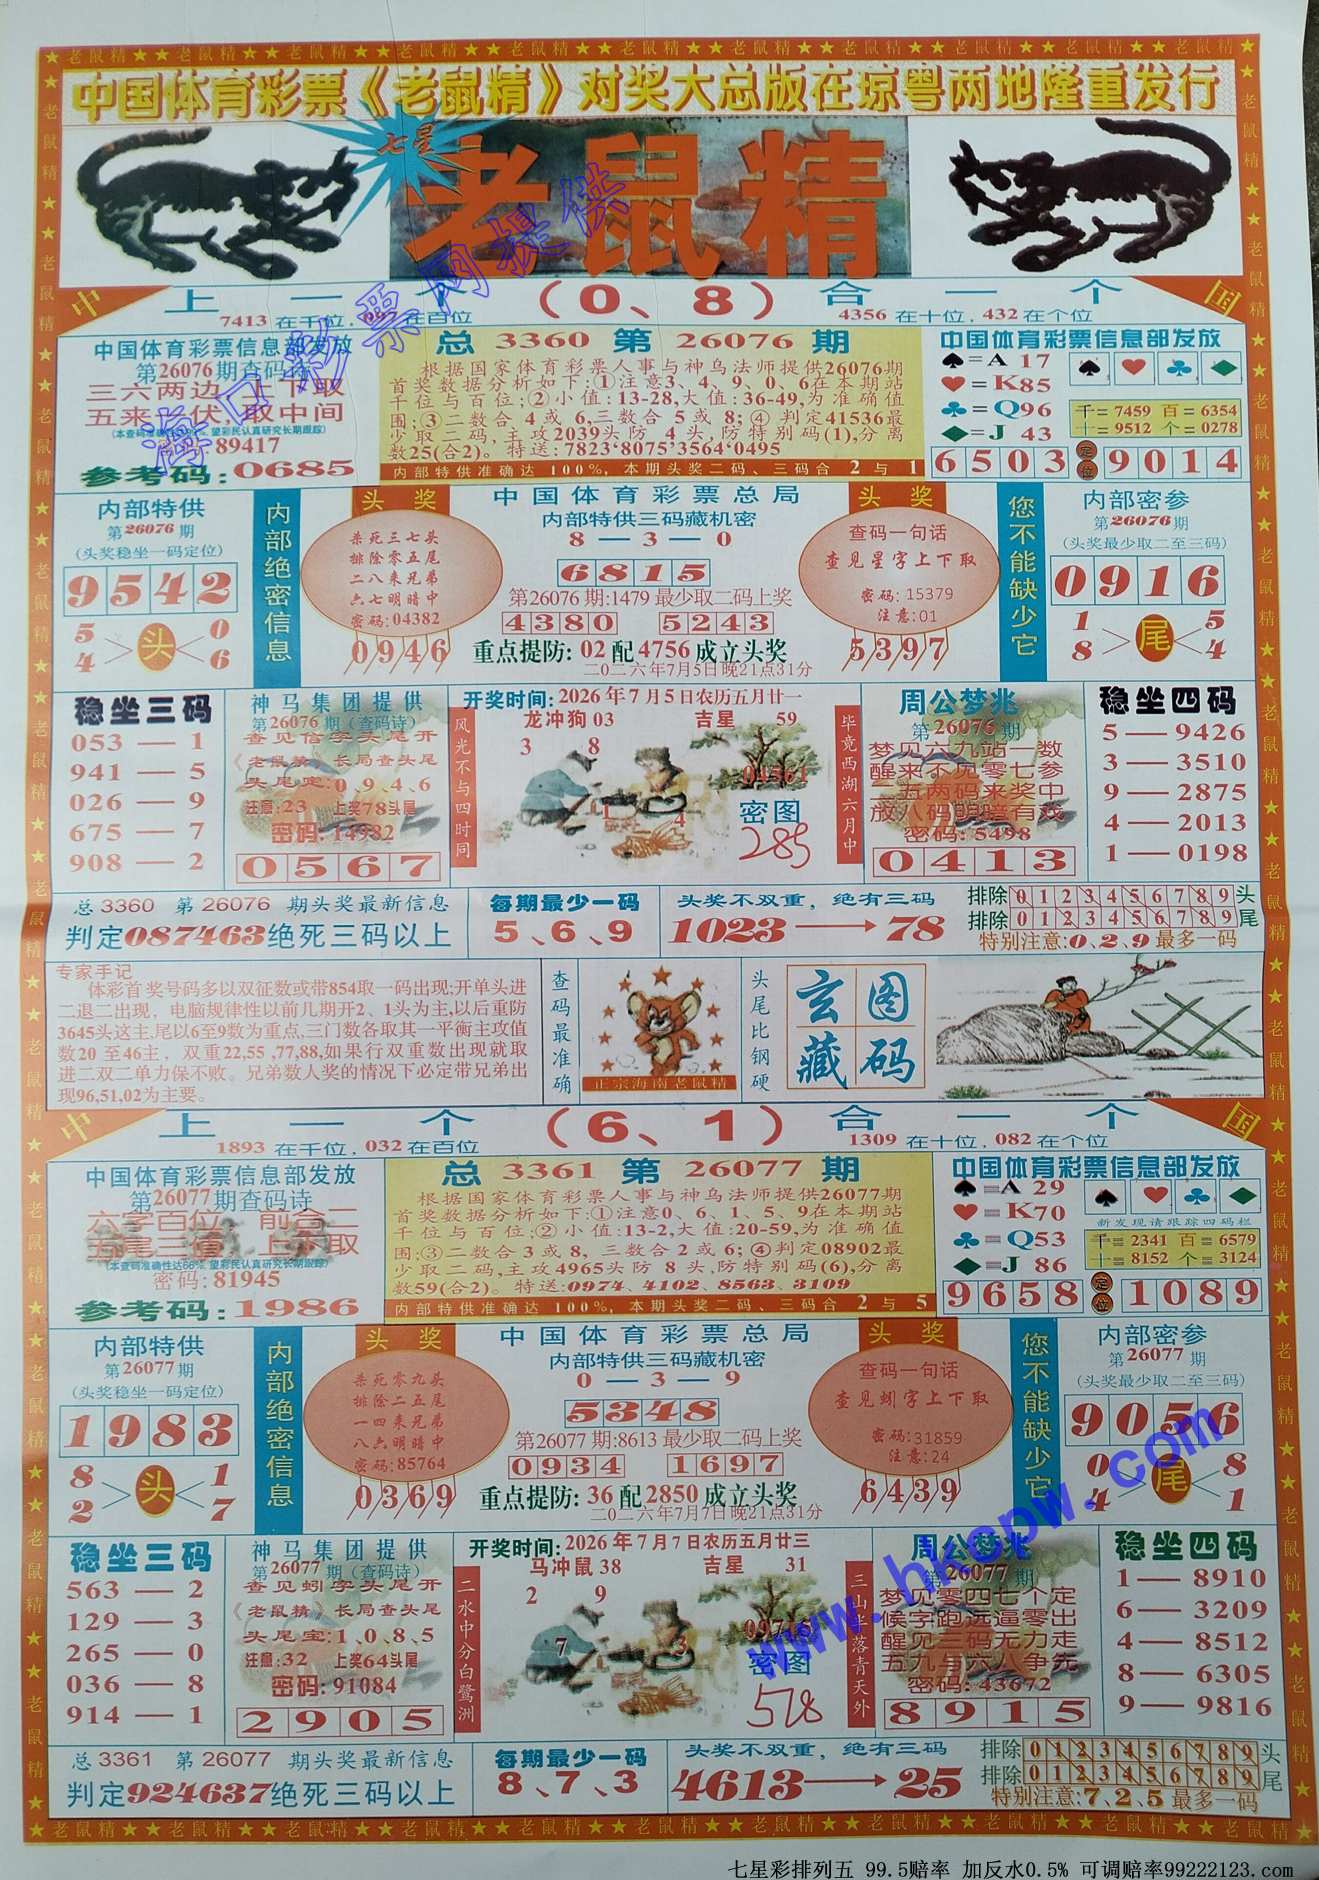 中国体育彩票《老鼠精》对奖大总版在琼粤两地隆重发行
七星
老鼠精
海口彩票网提供
中
上一个(0、8)合一个
国
7413在千位,097在百位
4356在十位,432在个位
中国体育彩票信息部发放
第26076期查码诗
三六两边上下取
五来七伏取中间
89417
参考码:0685
总3360第26076期
根据国家体育彩票人事与神乌法师提供26076期
首奖数据分析如下:①注意3、4、9、0、6在本期站
千位与百位;②小值:13-28,大值:36-49,为准确值
围;③二数合4或6,三数合5或8;④判定41536最
少取二码,主攻2039头防4头,防特别码(1),分离
数25(合2)。特送:7823‘8075’3564‘0495
内部特供准确达100%,本期头奖二码、三码合2与1
中国体育彩票信息部发放
♠=A 17
♥=K85
♣=Q96
♦=J 43
千=7459 百=6354
十=9512 个=0278
6503 定位 9014
内部特供
第26076期
(头奖稳坐一码定位)
9542
5 4 头 0 6
内部绝密信息
头奖
杀死三七头
排除零五尾
二八来兄弟
六七明暗中
密码:04382
0946
中国体育彩票总局
内部特供三码藏机密
8—3—0
6815
第26076期:1479最少取二码上奖
4380 5243
重点提防:02配4756成立头奖
二〇二六年7月5日晚21点31分
头奖
查码一句话
查见星字上下取
密码:15379
注意:01
5397
您不能缺少它
内部密参
第26076期
(头奖最少取二至三码)
0916
1 8 尾 5 4
稳坐三码
053—1
941—5
026—9
675—7
908—2
神马集团提供
第26076期(查码诗)
查见信字头尾开
《老鼠精》长局查头尾
头尾定:0、9、4、6
注意:23 上奖78头尾
密码:14982
0567
风光不与四时同
开奖时间:2026年7月5日农历五月廿一
龙冲狗03 吉星 59
3 8
04361
1 4
密图
285
毕竟西湖六月中
周公梦兆
第26076期
梦见六九站一数
醒来不见零七参
一五两码来奖中
放八码明暗有戏
密码:5498
0413
稳坐四码
5—9426
3—3510
9—2875
4—2013
1—0198
总3360 第26076 期头奖最新信息
判定087463绝死三码以上
每期最少一码
5、6、9
头奖不双重,绝有三码
1023→78
排除0123456789头
排除0123456789尾
特别注意:0、2、9最多一码
专家手记
体彩首奖号码多以双征数或带854取一码出现;开单头进
二退二出现,电脑规律性以前几期开2、1头为主,以后重防
3645头这主,尾以6至9数为重点,三门数各取其一平衡主攻值
数20至46主,双重22,55,77,88,如果行双重数出现就取
进二双二单力保不败。兄弟数人奖的情况下必定带兄弟出
现96,51,02为主要。
查码最准确
正宗海南老鼠精
头尾比钢硬
玄图藏码
中
上一个(6、1)合一个
国
1893在千位,032在百位
1309在十位,082在个位
中国体育彩票信息部发放
第26077期查码诗
六字百位 前合二
五尾三撞 上下取
(本查码准确性达66%,望彩民认真研究长期跟踪)
密码:81945
参考码:1986
总3361第26077期
根据国家体育彩票人事与神乌法师提供26077期
首奖数据分析如下:①注意0、6、1、5、9在本期站
千位与百位;②小值:13-2,大值:20-59,为准确值
围;③二数合3或8,三数合2或6;④判定08902最
少取二码,主攻4965头防8头,防特别码(6),分离
数59(合2)。特送:0974、4102、8563、3109
内部特供准确达100%,本期头奖二码、三码合2与5
中国体育彩票信息部发放
♠=A 29
♥=K70
♣=Q53
♦=J 86
新发现请跟踪四码栏
千=2341 百=6579
十=8152 个=3124
9658 定位 1089
内部特供
第26077期
(头奖稳坐一码定位)
1983
8 2 头 1 7
内部绝密信息
头奖
杀死零九头
排除二五尾
一四来兄弟
八六明暗中
密码:85764
0369
中国体育彩票总局
内部特供三码藏机密
0—3—9
5348
第26077期:8613最少取二码上奖
0934 1697
重点提防:36配2850成立头奖
二〇二六年7月7日晚21点31分
头奖
查码一句话
查见蚓字上下取
密码:31859
注意:24
6439
您不能缺少它
内部密参
第26077期
(头奖最少取二至三码)
9056
0 4 尾 8 1
稳坐三码
563—2
129—3
265—0
036—8
914—1
神马集团提供
第26077期(查码诗)
查见蚓字头尾开
《老鼠精》长局查头尾
头尾宝:1、0、8、5
注意:32 上奖64头尾
密码:91084
2905
二水中分白鹭洲
开奖时间:2026年7月7日农历五月廿三
马冲鼠38 吉星 31
2 9
7 3
密图
528
三山半落青天外
周公梦兆
第26077期
梦见零四七个定
候字跑远逼零出
醒见三码无力走
五九与六八争先
密码:43672
8915
稳坐四码
1—8910
6—3209
4—8512
8—6305
9—9816
www.hkcpw.com
总3361 第26077 期头奖最新信息
判定924637绝死三码以上
每期最少一码
8、7、3
头奖不双重,绝有三码
4613→25
排除0123456789头
排除0123456789尾
特别注意:7、2、5最多一码
七星彩排列五 99.5赔率 加反水0.5% 可调赔率99222123.com